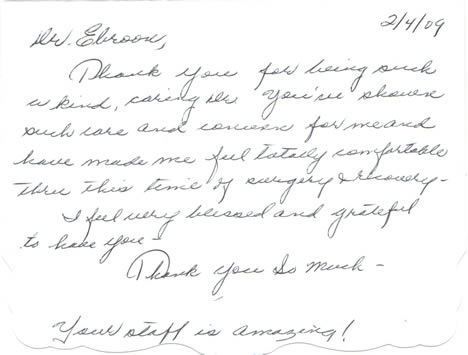 2/4/09
Dr. Ebroon,
Thank you for being such
a kind, caring Dr. You've shown
such care and concern for me and
have made me feel totally comfortable
thru this time of surgery & recovery -
I feel very blessed and grateful
to have you -
Thank you so much -
Your staff is amazing!